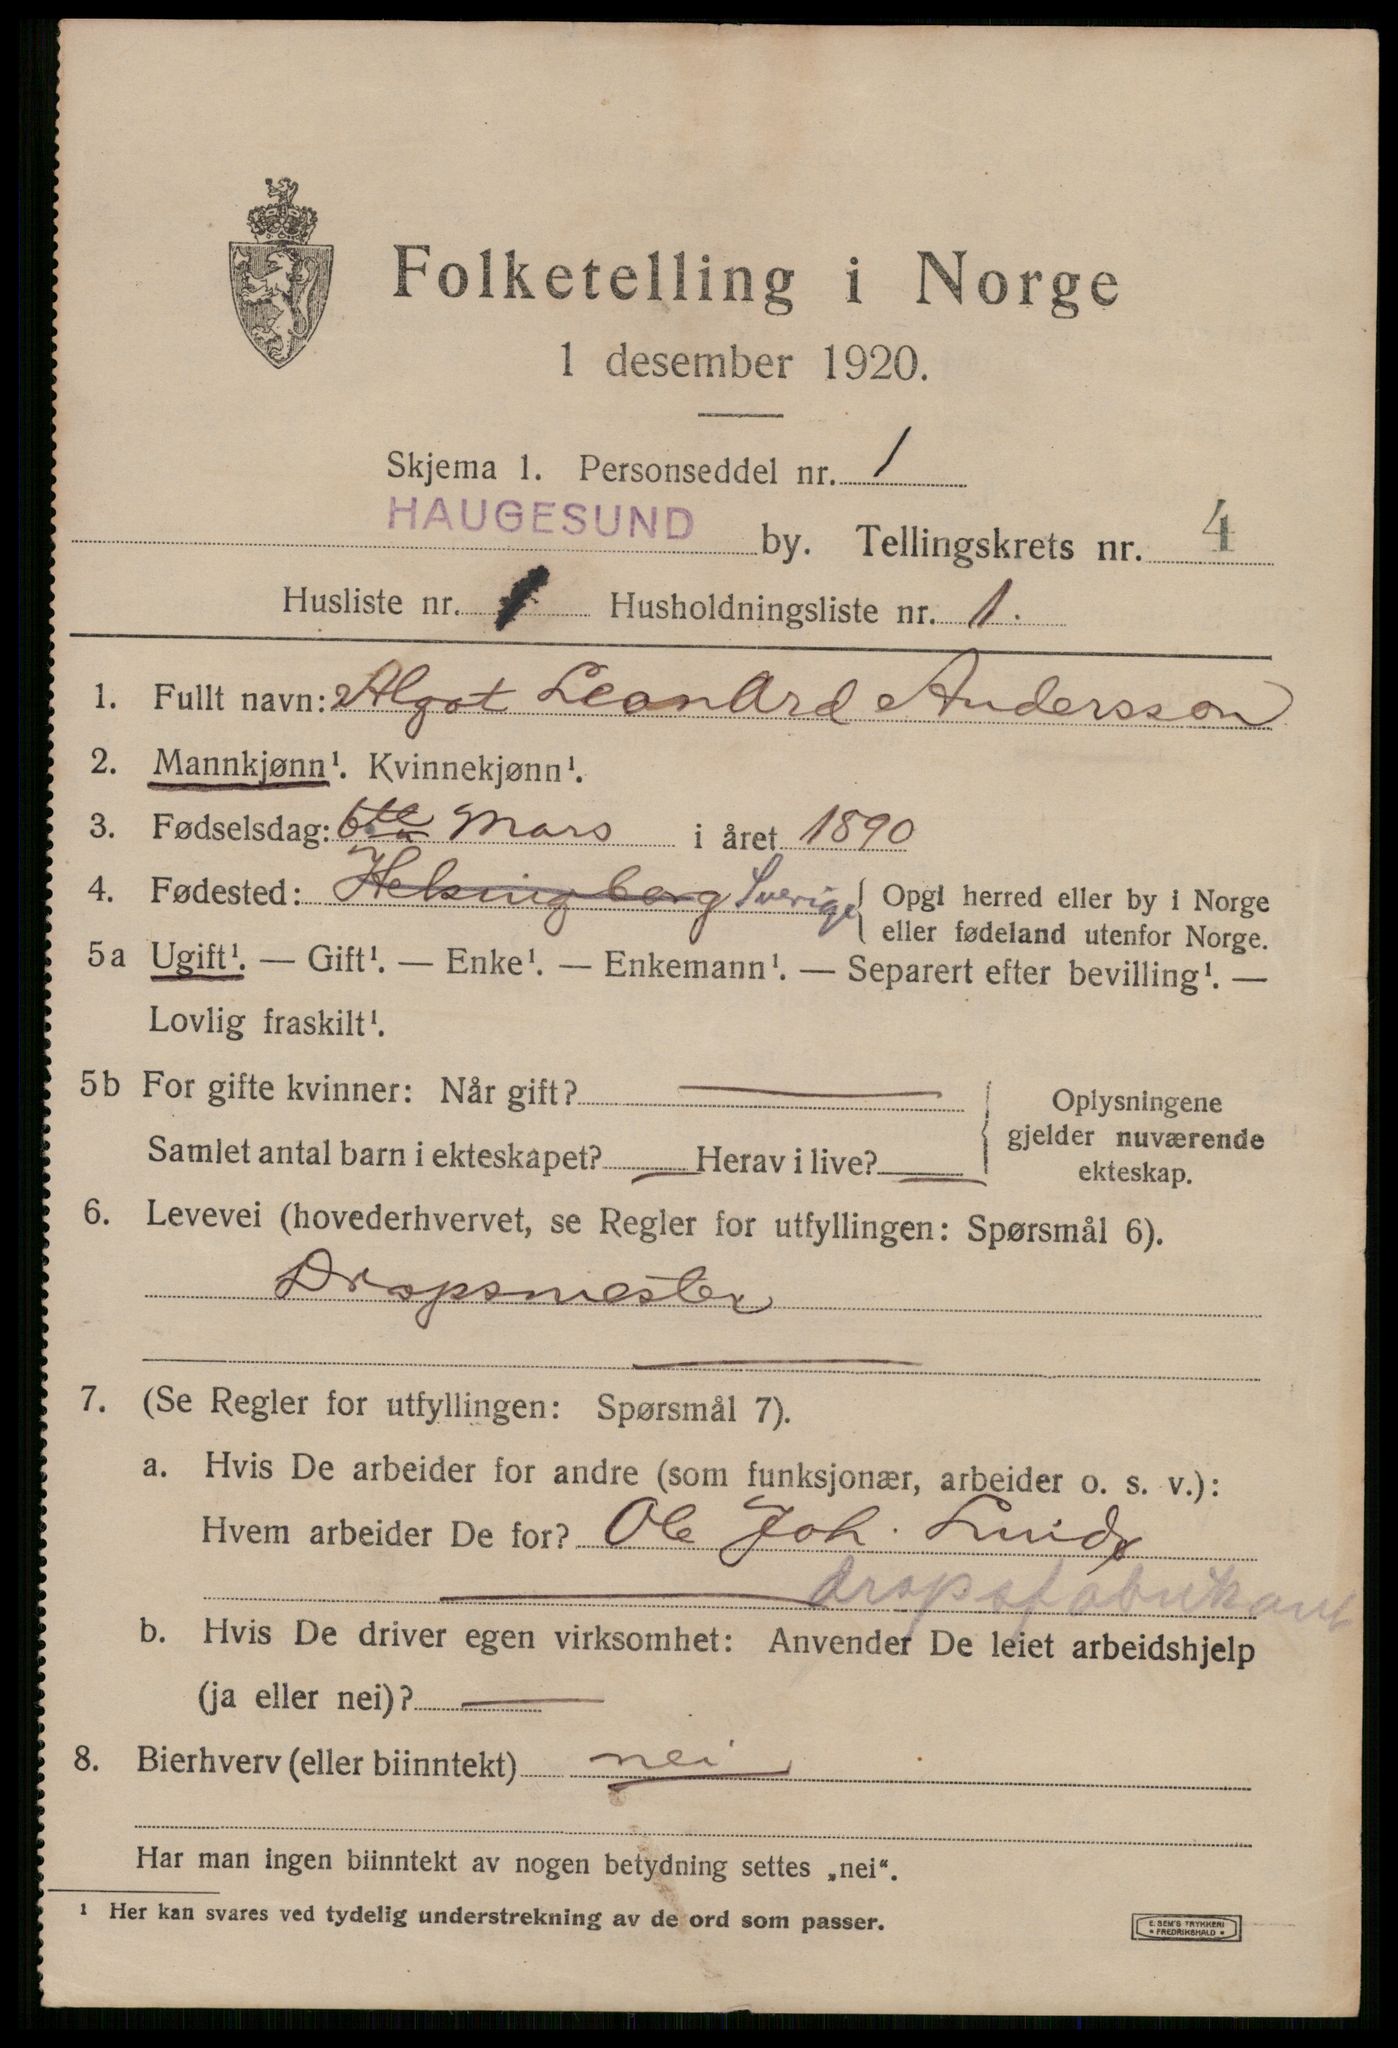 Folketelling i Norge
1 desember 1920.
Skjema 1. Personseddel nr. 1
HAUGESUND by. Tellingskrets nr. 4
Husliste nr. 1 Husholdningsliste nr. 1.
1. Fullt navn: Algot Leonard Andersson
2. Mannkjønn¹. Kvinnekjønn¹.
3. Fødselsdag: 6te Mars i året 1890
4. Fødested: Helsingborg Sverige { Opgi herred eller by i Norge
eller fødeland utenfor Norge.
5a Ugift¹. — Gift¹. — Enke¹. — Enkemann¹. — Separert efter bevilling¹. —
Lovlig fraskilt¹.
5b For gifte kvinner: Når gift? — { Oplysningene
gjelder nuværende
ekteskap.
Samlet antal barn i ekteskapet? — Herav i live? —
6. Levevei (hovederhvervet, se Regler for utfyllingen: Spørsmål 6).
Dropsmester
7. (Se Regler for utfyllingen: Spørsmål 7).
a. Hvis De arbeider for andre (som funksjonær, arbeider o. s. v.):
Hvem arbeider De for? Ole Joh.
dropsfabrikant
b. Hvis De driver egen virksomhet: Anvender De leiet arbeidshjelp
(ja eller nei)? —
8. Bierhverv (eller biinntekt) nei
Har man ingen biinntekt av nogen betydning settes „nei“.
¹ Her kan svares ved tydelig understrekning av de ord som passer.
E. SEM'S TRYKKERI
* FREDRIKSHALD *